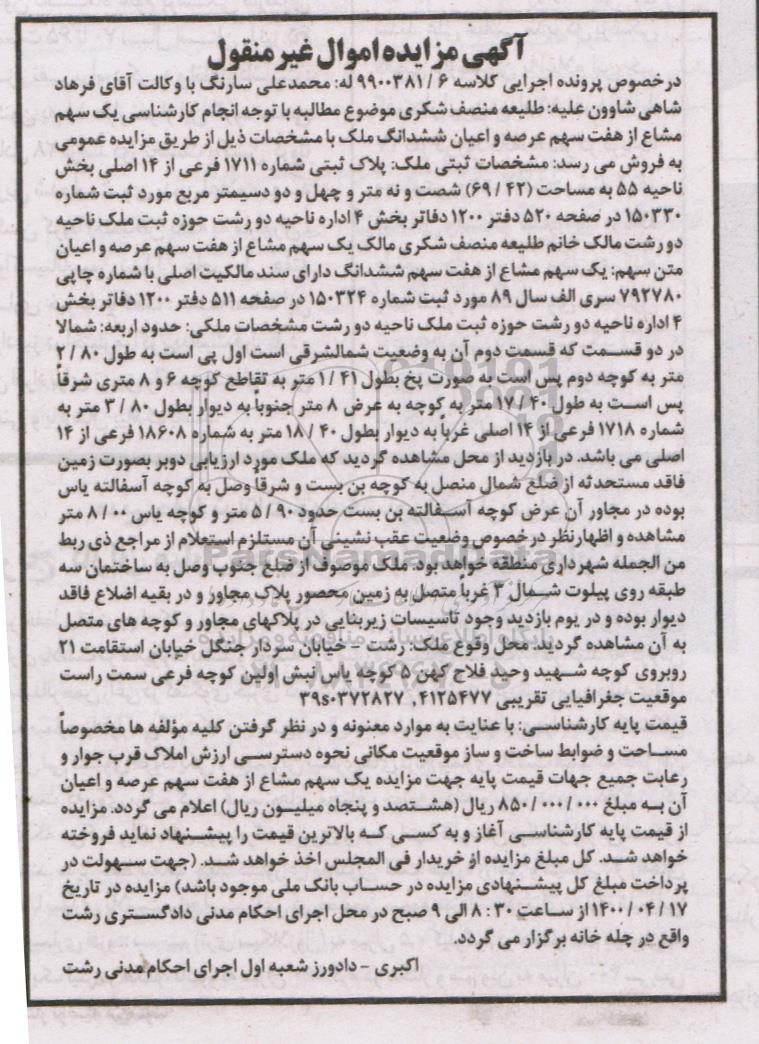 آگهی مزایده اموال غیر منقول
درخصوص پرونده اجرایی کلاسه ۶ / ۹۹۰۰۳۸۱ له: محمدعلی سارنگ با وکالت آقای فرهاد
شاهی شاوون علیه: طلیعه منصف شکری موضوع مطالبه با توجه انجام کارشناسی یک سهم
مشاع از هفت سهم عرصه و اعیان ششدانگ ملک با مشخصات ذیل از طریق مزایده عمومی
به فروش می رسد: مشخصات ثبتی ملک: پلاک ثبتی شماره ۱۷۱۱ فرعی از ۱۴ اصلی بخش
ناحیه ۵۵ به مساحت (۴۲ / ۶۹) شصت و نه متر و چهل و دو دسیمتر مربع مورد ثبت شماره
۱۵۰۳۳۰ در صفحه ۵۲۰ دفتر ۱۲۰۰ دفاتر بخش ۴ اداره ناحیه دو رشت حوزه ثبت ملک ناحیه
دو رشت مالک خانم طلیعه منصف شکری مالک یک سهم مشاع از هفت سهم عرصه و اعیان
متن سهم: یک سهم مشاع از هفت سهم ششدانگ دارای سند مالکیت اصلی با شماره چاپی
۷۹۲۷۸۰ سری الف سال ۸۹ مورد ثبت شماره ۱۵۰۳۲۴ در صفحه ۵۱۱ دفتر ۱۲۰۰ دفاتر بخش
۴ اداره ناحیه دو رشت حوزه ثبت ملک ناحیه دو رشت مشخصات ملکی: حدود اربعه: شمالا
در دو قسمت که قسمت دوم آن به وضعیت شمالشرقی است اول پی است به طول ۸۰ / ۲
متر به کوچه دوم پس است به صورت پخ بطول ۴۱ / ۱ متر به تقاطع کوچه ۶ و ۸ متری شرقاً
پس است به طول ۴۰ / ۱۷ متر به کوچه به عرض ۸ متر جنوباً به دیوار بطول ۸۰ / ۳ متر به
شماره ۱۷۱۸ فرعی از ۱۴ اصلی غرباً به دیوار بطول ۴۰ / ۱۸ متر به شماره ۱۸۶۰۸ فرعی از ۱۴
اصلی می باشد. در بازدید از محل مشاهده گردید که ملک مورد ارزیابی دوبر بصورت زمین
فاقد مستحدثه از ضلع شمال منصل به کوچه بن بست و شرقاً وصل به کوچه آسفالته یاس
بوده در مجاور آن عرض کوچه آسفالته بن بست حدود ۹۰ / ۵ متر و کوچه یاس ۰۰ / ۸ متر
مشاهده و اظهارنظر درخصوص وضعیت عقب نشینی آن مستلزم استعلام از مراجع ذی ربط
من الجمله شهرداری منطقه خواهد بود. ملک موصوف از ضلع جنوب وصل به ساختمان سه
طبقه روی پیلوت شمال ۳ غرباً متصل به زمین محصور پلاک مجاور و در بقیه اضلاع فاقد
دیوار بوده و در یوم بازدید وجود تاسیسات زیربنایی در پلاکهای مجاور و کوچه های متصل
به آن مشاهده گردید. محل وقوع ملک: رشت - خیابان سردار جنگل خیابان استقامت ۲۱
روبروی کوچه شهید وحید فلاح کهن ۵ کوچه یاس نبش اولین کوچه فرعی سمت راست
موقعیت جغرافیایی تقریبی ۴۱۲۵۴۷۷, ۳۹s۰۳۷۲۸۲۷
قیمت پایه کارشناسی: با عنایت به موارد معنونه و در نظر گرفتن کلیه مؤلفه ها مخصوصاً
مساحت و ضوابط ساخت و ساز موقعیت مکانی نحوه دسترسی ارزش املاک قرب جوار و
رعابت جمیع جهات قیمت پایه جهت مزایده یک سهم مشاع از هفت سهم عرصه و اعیان
آن به مبلغ ۰۰۰ / ۰۰۰ / ۸۵۰ ریال (هشتصد و پنجاه میلیون ریال) اعلام می گردد. مزایده
از قیمت پایه کارشناسی آغاز و به کسی که بالاترین قیمت را پیشنهاد نماید فروخته
خواهد شد. کل مبلغ مزایده از خریدار فی المجلس اخذ خواهد شد. (جهت سهولت در
پرداخت مبلغ کل پیشنهادی مزایده در حساب بانک ملی موجود باشد) مزایده در تاریخ
۱۷ / ۰۴ / ۱۴۰۰ از ساعت ۳۰ : ۸ الی ۹ صبح در محل اجرای احکام مدنی دادگستری رشت
واقع در چله خانه برگزار می گردد.
اکبری - دادورز شعبه اول اجرای احکام مدنی رشت
ParsNamadData